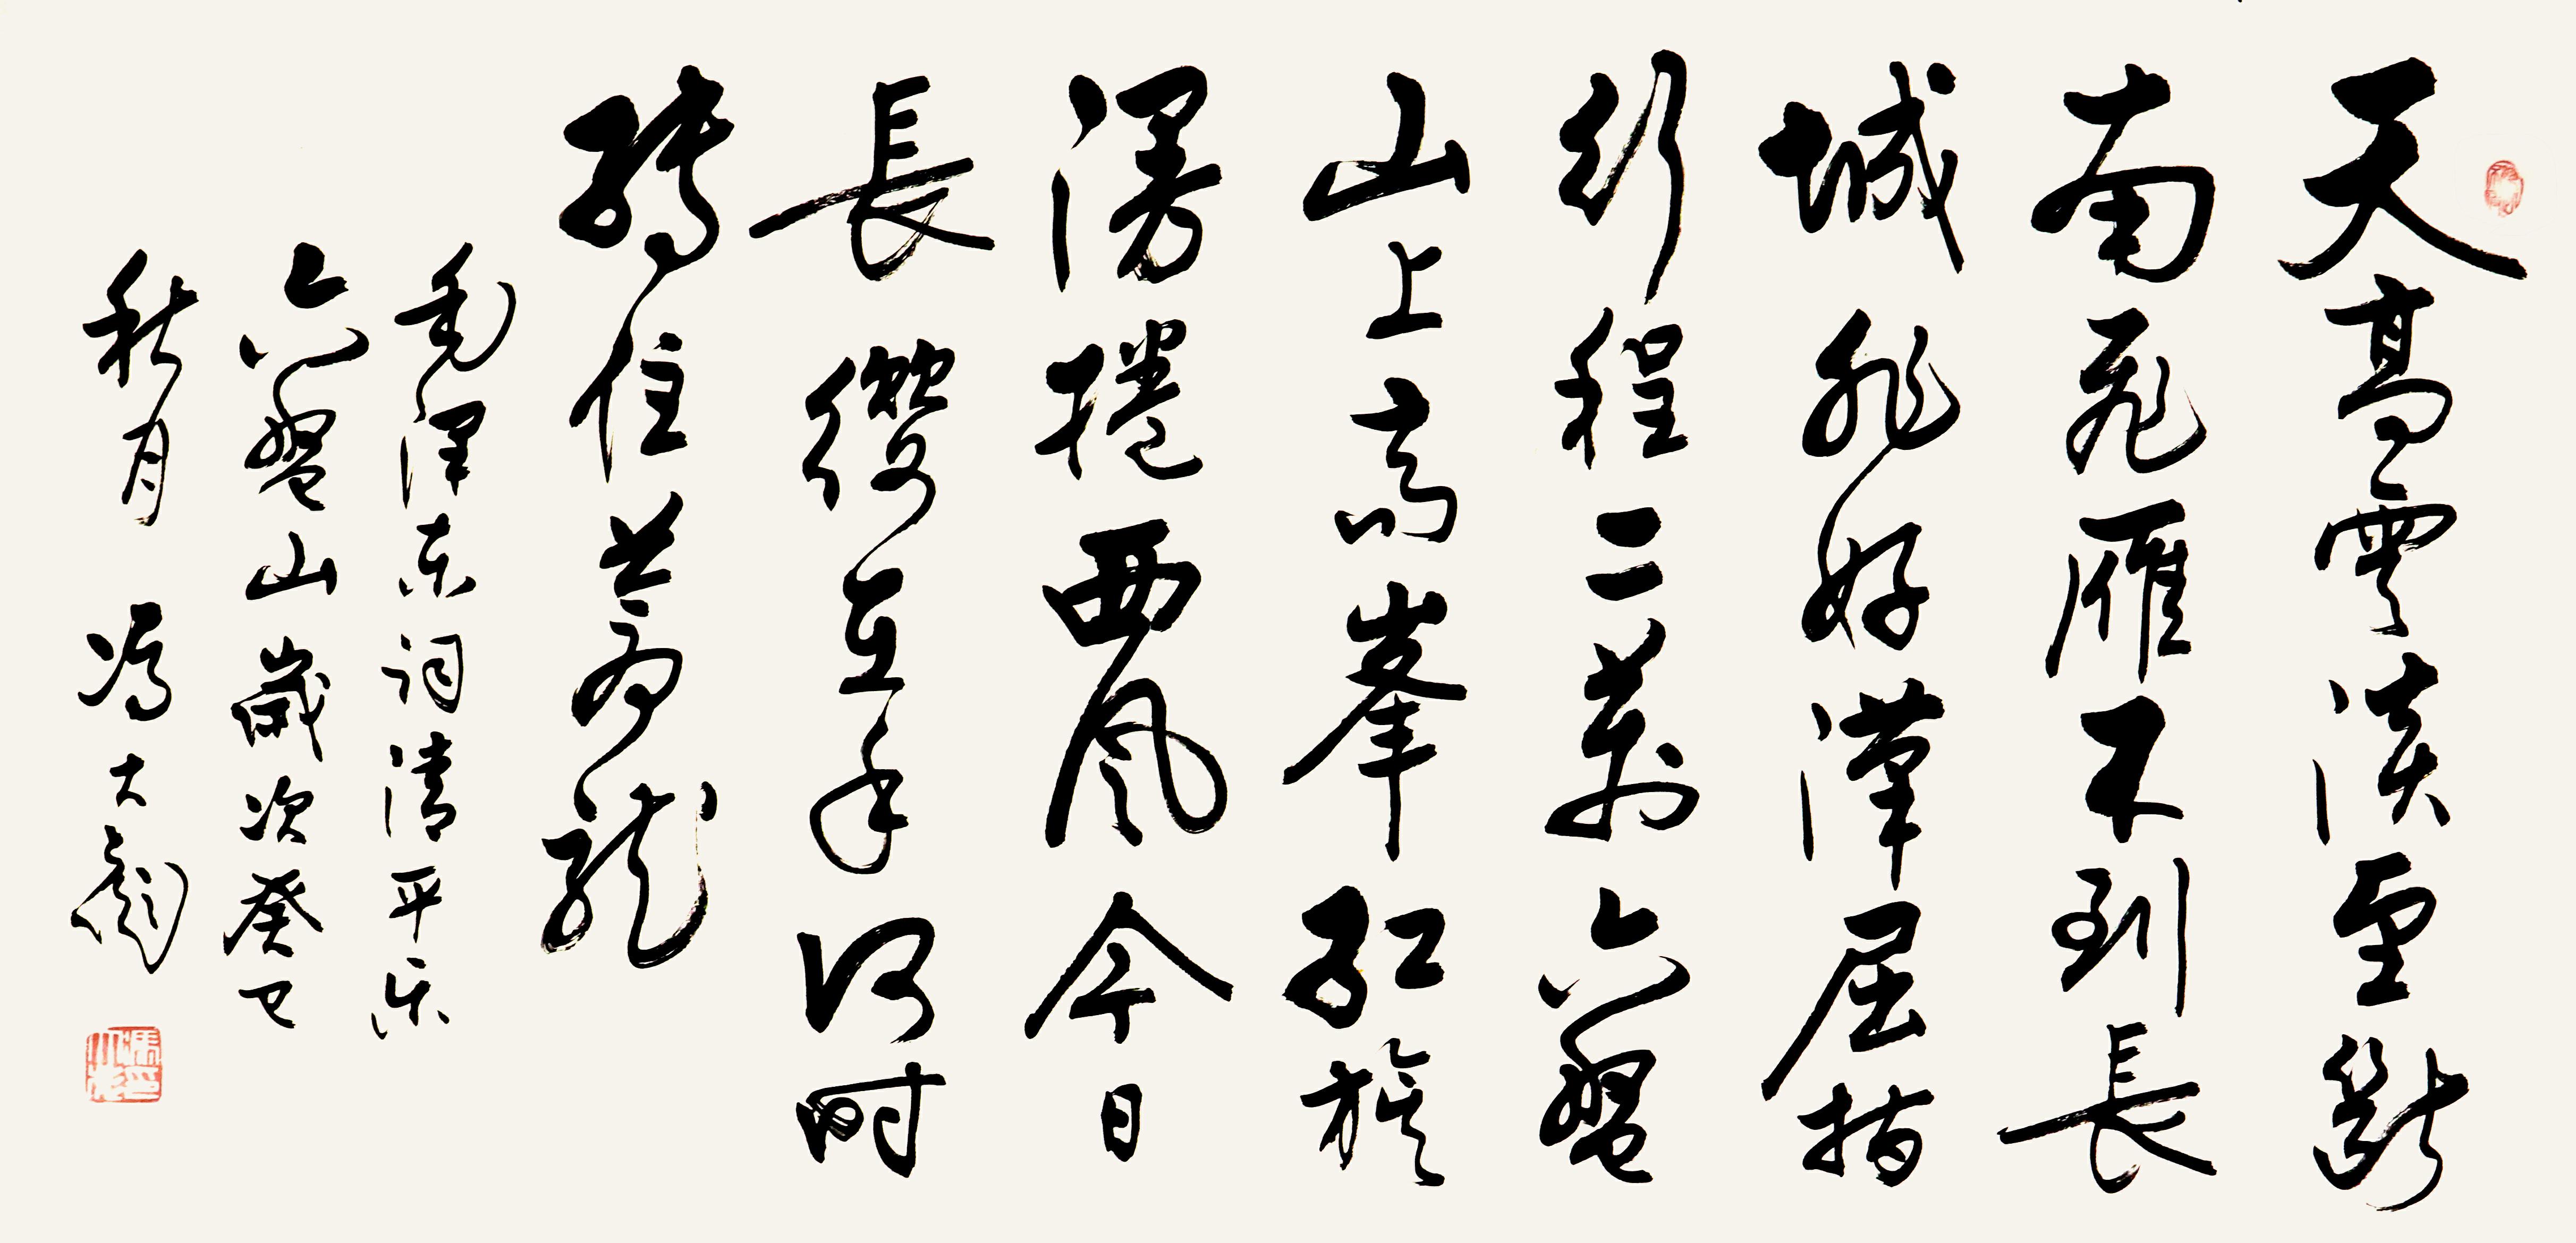 天高雲淡望斷
南飛雁不到長
城非好漢屈指
行程二萬六盤
山上高峯紅旗
漫捲西風今日
長纓在手何時
縛住蒼龍
毛澤东词清平乐
六盤山歲次癸巳
秋月 馮大彪